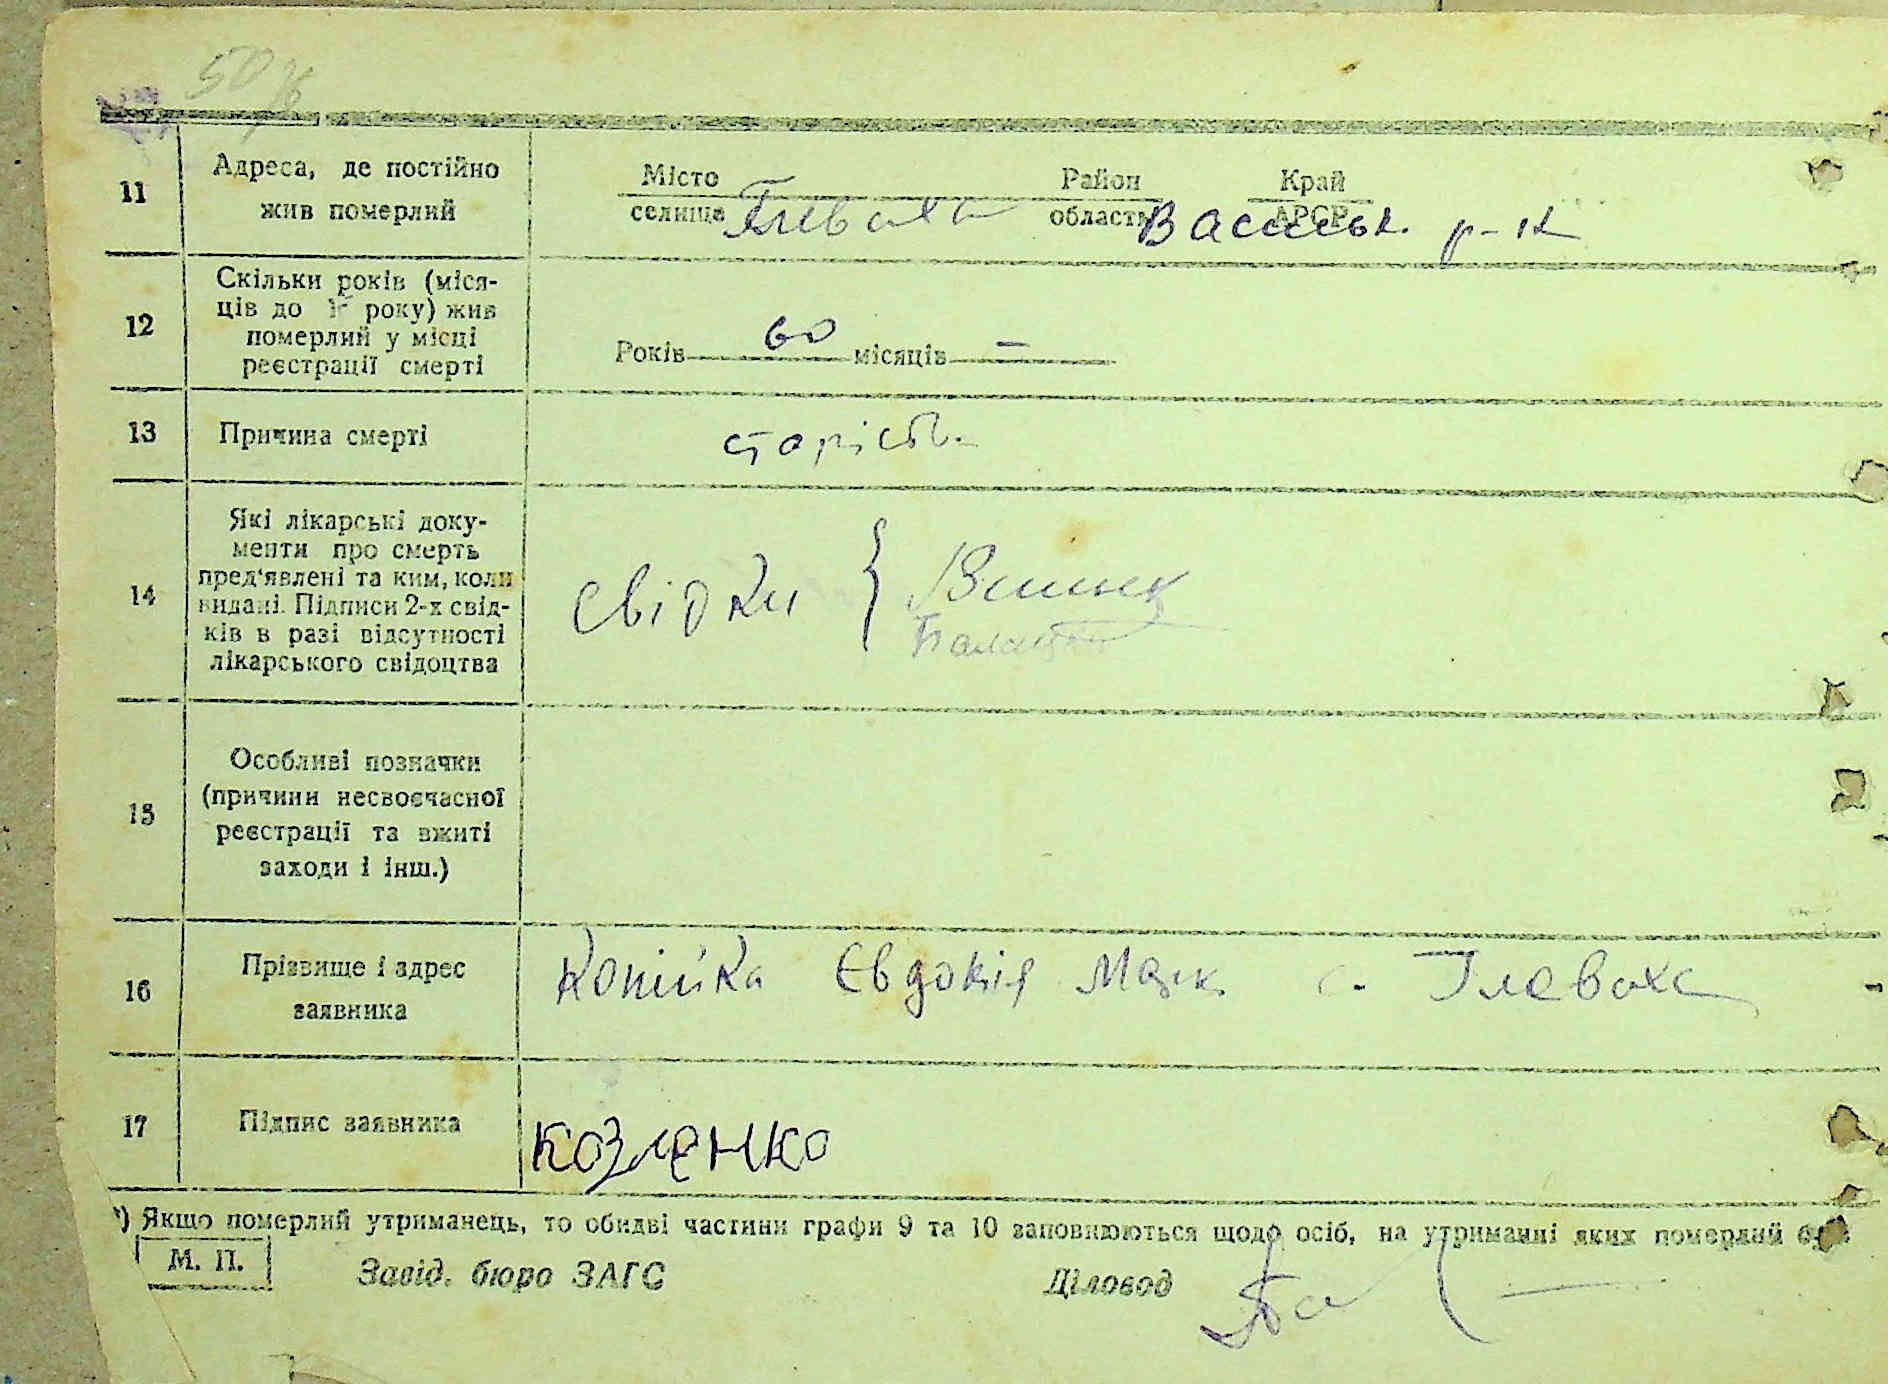 50
11
Адреса, де постійно
жив померлий
Місто
селище Глеваха
Район
область Васильк. р-н
Край
АРСР
12
Скільки років (міся-
ців до 1 року) жив
померлий у місці
реєстрації смерті
Років 60 місяців —
13
Причина смерті
старість
14
Які лікарські доку-
менти про смерть
пред'явлені та ким, коли
видані. Підписи 2-х свід-
ків в разі відсутності
лікарського свідоцтва
свідки {
15
Особливі позначки
(причини несвоєчасної
реєстрації та вжиті
заходи і інш.)
16
Прізвище і адрес
заявника
Копійка Євдокія Марк. с. Глеваха
17
Підпис заявника
козленко
*) Якщо померлий утриманець, то обидві частини графи 9 та 10 заповнюються щодо осіб, на утриманні яких померлий був
М. П.
Завід. бюро ЗАГС
Діловод